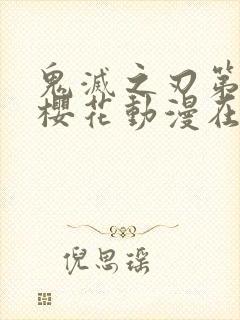 鬼滅之刃第
櫻花動漫在
倪思瑶